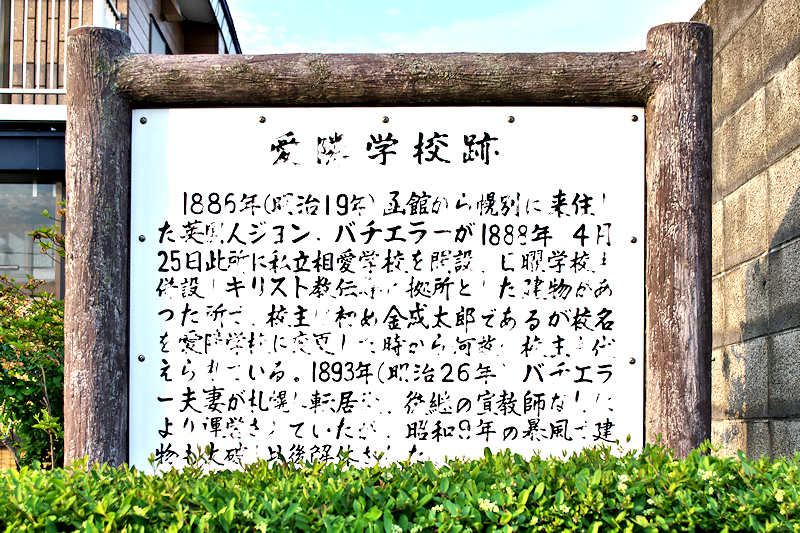 愛隣学校跡
1886年(明治19年)函館から幌別に来住し
た英国人ジョン、バチエラーが1888年 4月
25日此所に私立相愛学校を開設、日曜学校も
併設しキリスト教伝導の拠所とした建物があ
った所で、校主は初め金成太郎であるが校名
を愛隣学校に変更した時から何故か校主も代
えられている。1893年(明治26年)バチエラ
ー夫妻が札幌に転居し、後継の宣教師などに
より運営されていたが、昭和9年の暴風で建
物も大破し其後解体された